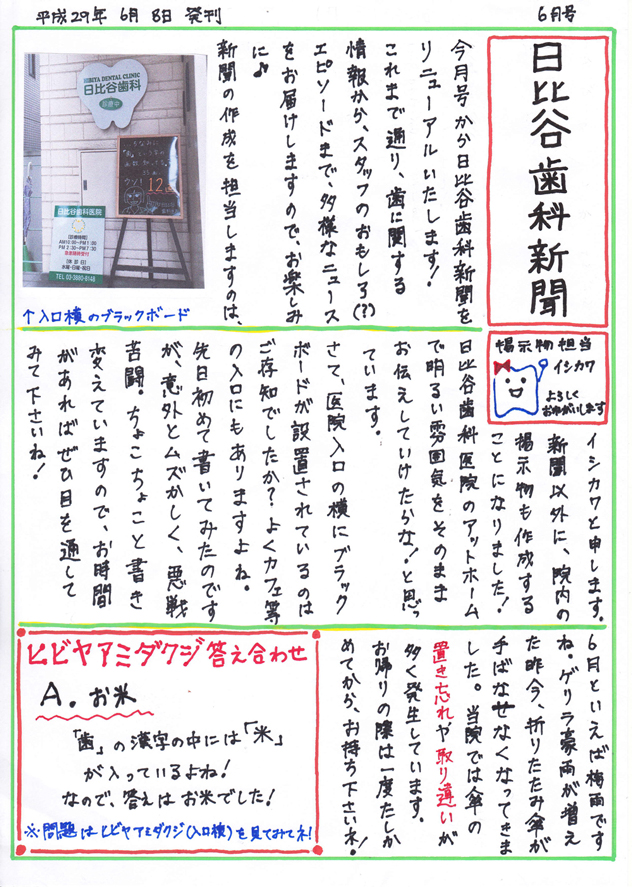 平成29年 6月 8日 発刊
6月号
日比谷歯科新聞
今月号から日比谷歯科新聞を
リニューアルいたします！
これまで通り、歯に関する
情報から、スタッフのおもしろ(？)
エピソードまで、多様なニュース
をお届けしますので、お楽しみ
に♪
新聞の作成を担当しますのは、
HIBIYA DENTAL CLINIC
日比谷歯科
診療中
日比谷歯科医院
【診療時間】
AM10:00~PM1:00
PM2:30~PM7:30
【休診日】
木曜・日曜・祝日
TEL 03-3680-8148
↑入口横のブラックボード
掲示物担当
イシカワ
よろしく
おねがいします
イシカワと申します。
新聞以外に、院内の
掲示物も作成する
ことになりました！
日比谷歯科医院のアットホーム
で明るい雰囲気をそのまま
お伝えしていけたらな！と思っ
ています。
さて、医院入口の横にブラック
ボードが設置されているのは
ご存知でしたか？よくカフェ等
の入口にもありますよね。
先日初めて書いてみたのです
が、意外とムズかしく、悪戦
苦闘。ちょこちょこと書き
変えていますので、お時間
があればぜひ目を通して
みて下さいね！
6月といえば梅雨です
ね。ゲリラ豪雨が増え
た昨今、折りたたみ傘が
手ばなせなくなってきま
した。当院では傘の
置き忘れや取り違いが
多く発生しています。
お帰りの際は一度たしか
めてから、お持ち下さいネ！
ヒビヤアミダクジ答え合わせ
A. お米
「歯」の漢字の中には「米」
が入っているよね！
なので、答えはお米でした！
※問題はヒビヤアミダクジ(入口横)を見てみてネ！